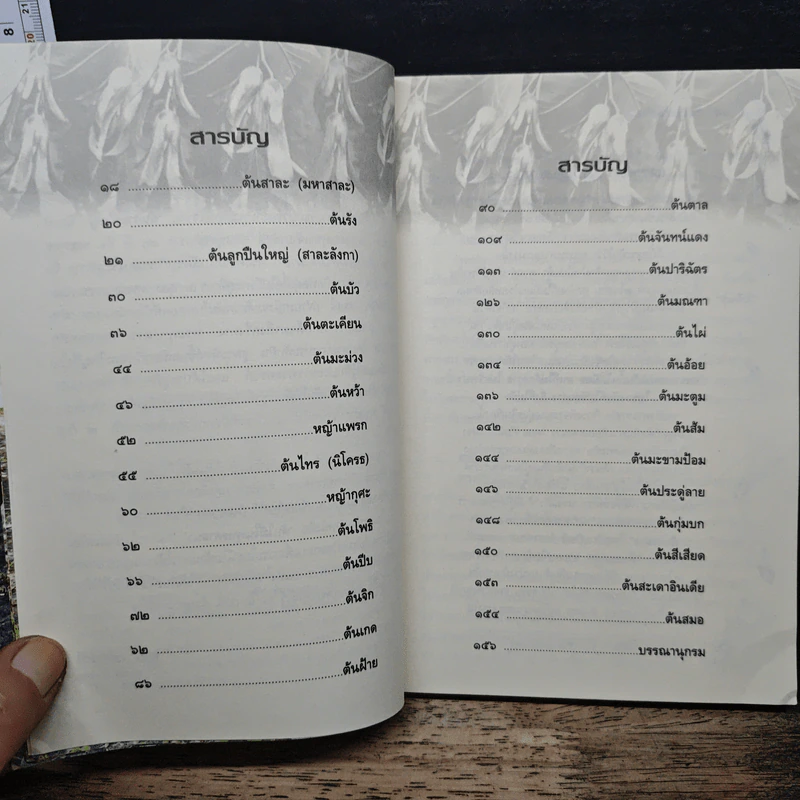 8
20
21
สารบัญ
๑๘ ต้นสาละ (มหาสาละ)
๒๐ ต้นรัง
๒๑ ต้นลูกปืนใหญ่ (สาละลังกา)
๓๐ ต้นบัว
๓๖ ต้นตะเคียน
๔๔ ต้นมะม่วง
๔๖ ต้นหว้า
๕๒ หญ้าแพรก
๕๕ ต้นไทร (นิโครธ)
๖๐ หญ้ากุศะ
๖๒ ต้นโพธิ
๖๖ ต้นปีบ
๗๒ ต้นจิก
๖๒ ต้นเกด
๘๖ ต้นฝ้าย
สารบัญ
๙๐ ต้นตาล
๑๐๙ ต้นจันทน์แดง
๑๑๓ ต้นปาริฉัตร
๑๒๖ ต้นมณฑา
๑๓๐ ต้นไผ่
๑๓๔ ต้นอ้อย
๑๓๖ ต้นมะตูม
๑๔๒ ต้นส้ม
๑๔๔ ต้นมะขามป้อม
๑๔๖ ต้นประดู่ลาย
๑๔๘ ต้นกุ่มบก
๑๕๐ ต้นสีเสียด
๑๕๓ ต้นสะเดาอินเดีย
๑๕๔ ต้นสมอ
๑๕๖ บรรณานุกรม